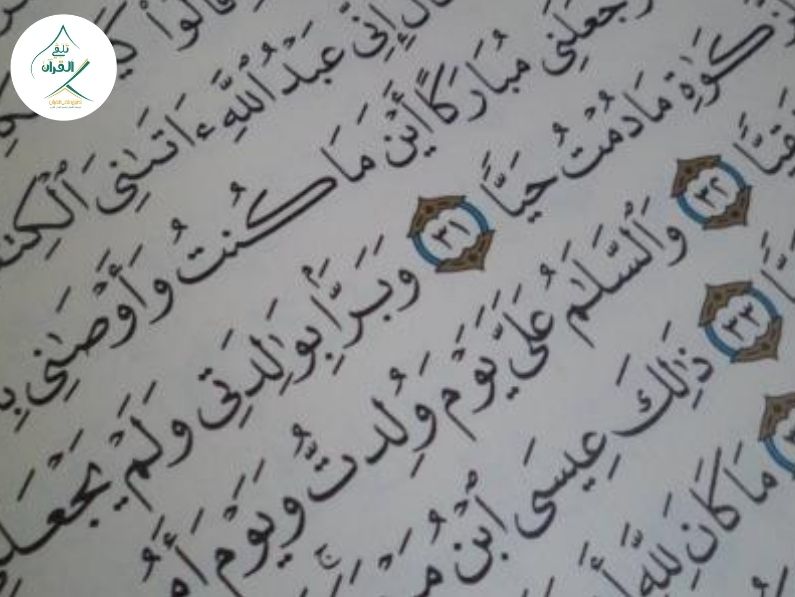 تلقي
القرآن
قَالُوا۟
إِنِّى عَبْدُ ٱللَّهِ ءَاتَىٰنِىَ ٱلْكِتَـ
وَجَعَلَنِى مُبَارَكًا أَيْنَ مَا كُنتُ وَأَوْصَـٰنِى بِـ
كَوٰةِ مَا دُمْتُ حَيًّا ٣١ وَبَرًّۢا بِوَٰلِدَتِى وَلَمْ يَجْعَلـ
قِيًّا ٣٢ وَٱلسَّلَـٰمُ عَلَىَّ يَوْمَ وُلِدتُّ وَيَوْمَ أَمُـ
٣٣ ذَٰلِكَ عِيسَى ٱبْنُ
مَا كَانَ لِلَّهِ